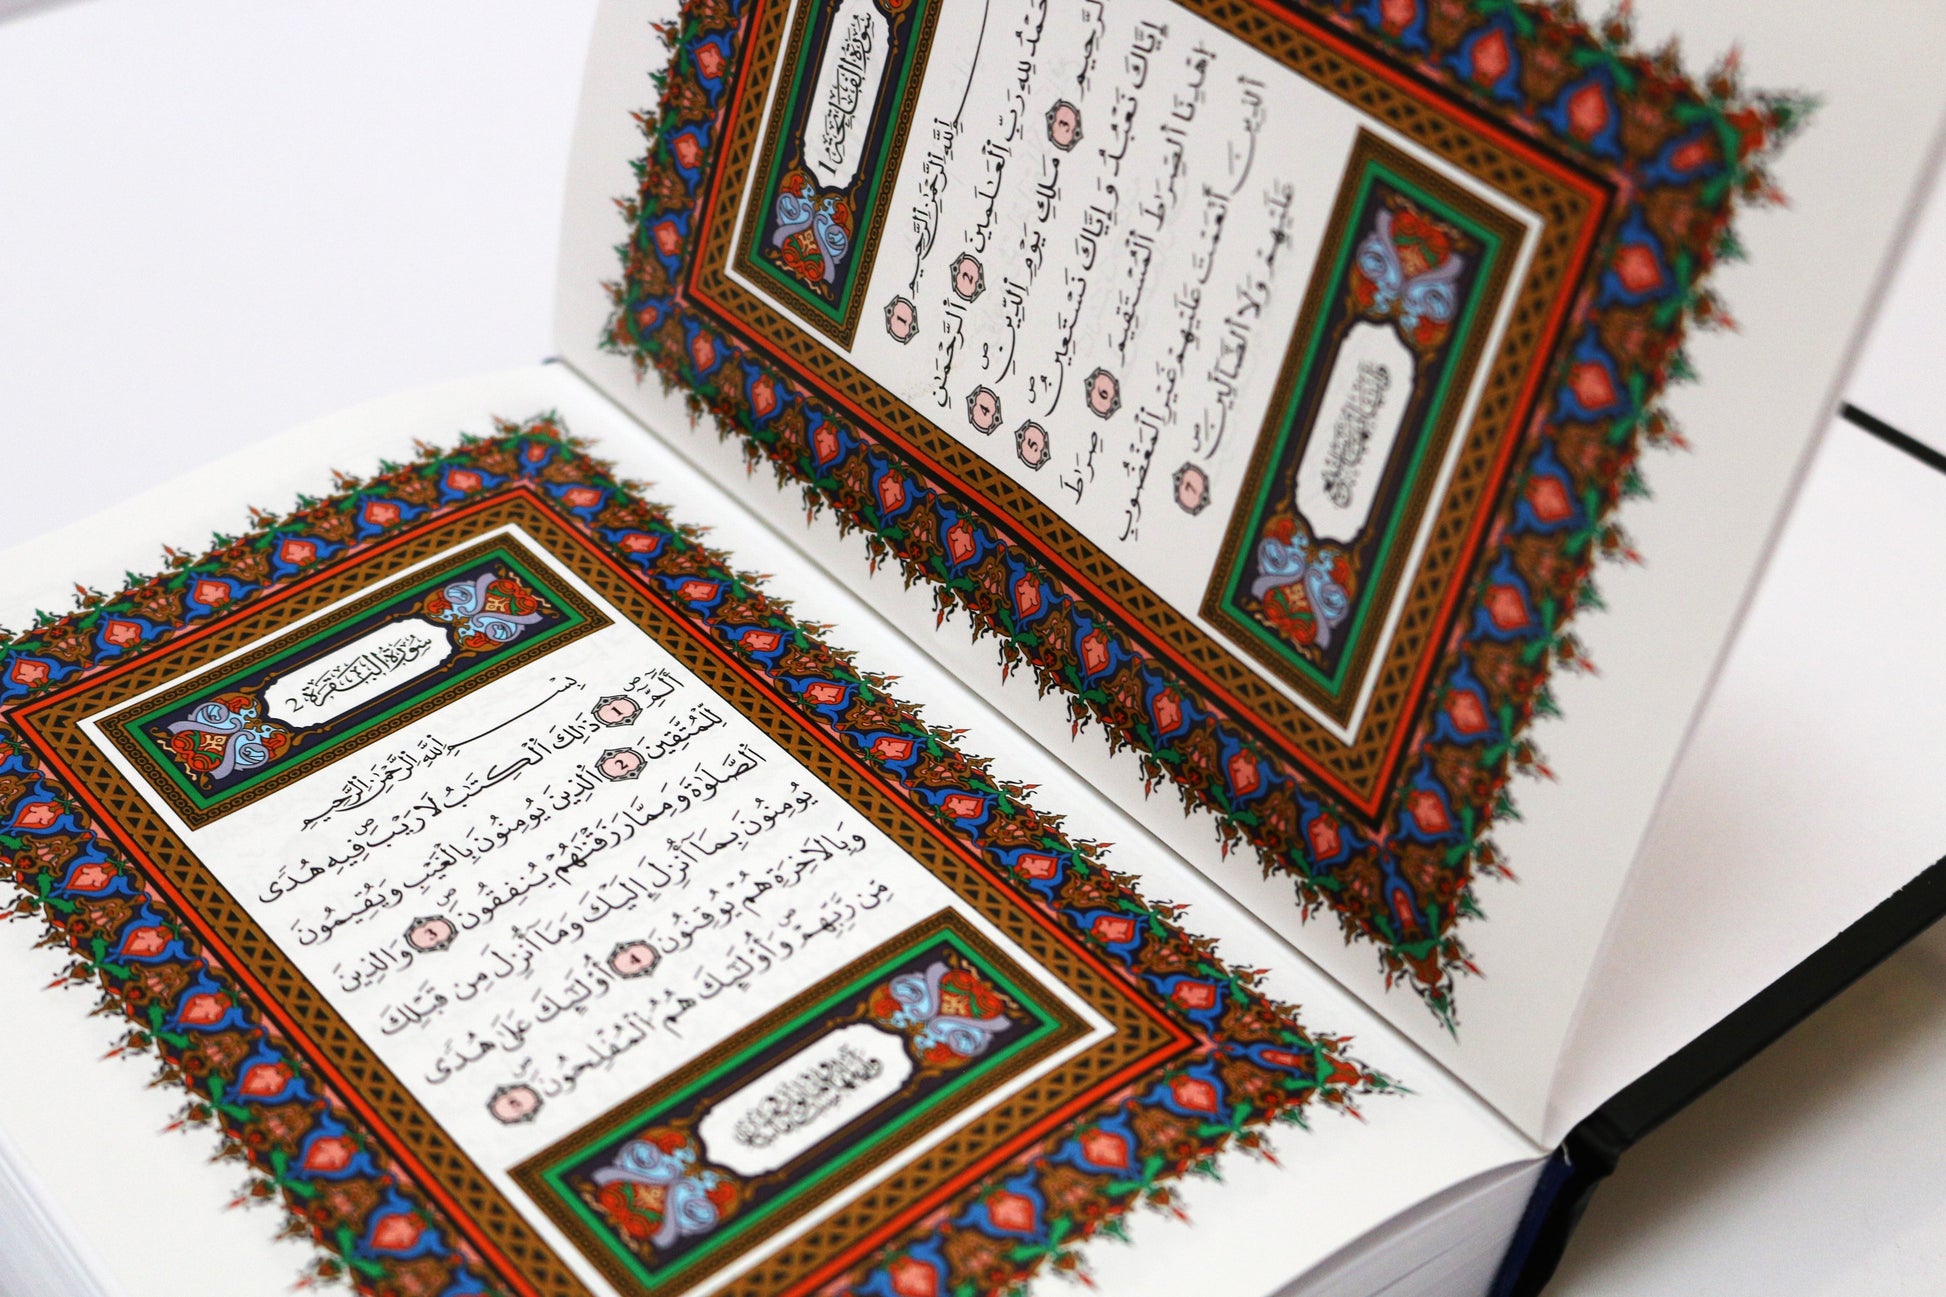 سُورَةُ الْفَاتِحَةِ 1
اِ۬للَّهِ اِ۬لرَّحْمَٰنِ اِ۬لرَّحِيمِ 1
رَبِّ اِ۬لْعَٰلَمِينَ 2 اَ۬لرَّحْمَٰنِ
اَ۬لرَّحِيمِ 3 مَلِكِ يَوْمِ اِ۬لدِّينِ ص 4
إِيَّاكَ نَعْبُدُ وَإِيَّاكَ نَسْتَعِينُ ص 5
اُ۪هْدِنَا اَ۬لصِّرَٰطَ اَ۬لْمُسْتَقِيمَ 6 صِرَٰطَ
اَ۬لذِينَ أَنْعَمْتَ عَلَيْهِمْ غَيْرِ اِ۬لْمَغْضُوبِ
عَلَيْهِمْ وَلَا اَ۬لضَّآلِّينَ ص 7
سُورَةُ الْبَقَرَةِ 2
بِسْمِ اِ۬للَّهِ اِ۬لرَّحْمَٰنِ اِ۬لرَّحِيمِ
أَلَٓمِّٓ ص 1 ذَٰلِكَ اَ۬لْكِتَٰبُ لَا رَيْبَ ص فِيهِ هُدىً
لِّلْمُتَّقِينَ 2 اَ۬لذِينَ يُومِنُونَ بِالْغَيْبِ وَيُقِيمُونَ
اَ۬لصَّلَوٰةَ وَمِمَّا رَزَقْنَٰهُمْ يُنفِقُونَ ص 3 وَالذِينَ
يُومِنُونَ بِمَآ أُنزِلَ إِلَيْكَ وَمَآ أُنزِلَ مِن قَبْلِكَ
وَبِالَاخِرَةِ هُمْ يُوقِنُونَ ص 4 أُوْلَٰٓئِكَ عَلَىٰ هُدىً
مِّن رَّبِّهِمْ ص وَأُوْلَٰٓئِكَ هُمُ اُ۬لْمُفْلِحُونَ ص 5